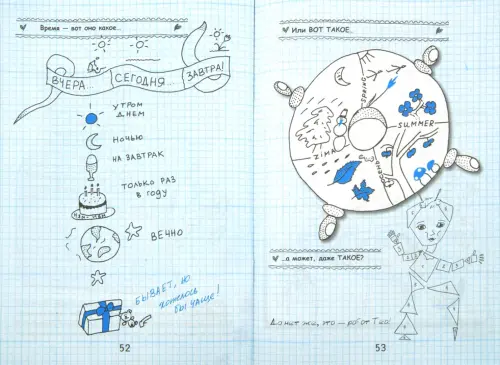 Время — вот оно какое...
ВЧЕРА... СЕГОДНЯ... ЗАВТРА!
УТРОМ
ДНЕМ
НОЧЬЮ
НА ЗАВТРАК
ТОЛЬКО РАЗ
В ГОДУ
НЯМ-НЯМ
ВЕЧНО
БЫВАЕТ, НО
хотелось
БЫ ЧАЩЕ!
52
Или ВОТ ТАКОЕ...
SPRING
SUMMER
ZИМА
...а может, даже ТАКОЕ?
53